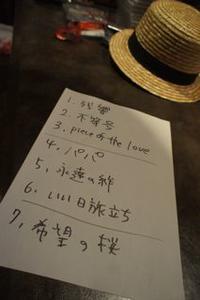 1. 残響
2. 不等号
3. piece of the love
4. パパ
5. 永遠の絆
6. いい日旅立ち
7. 希望の桜